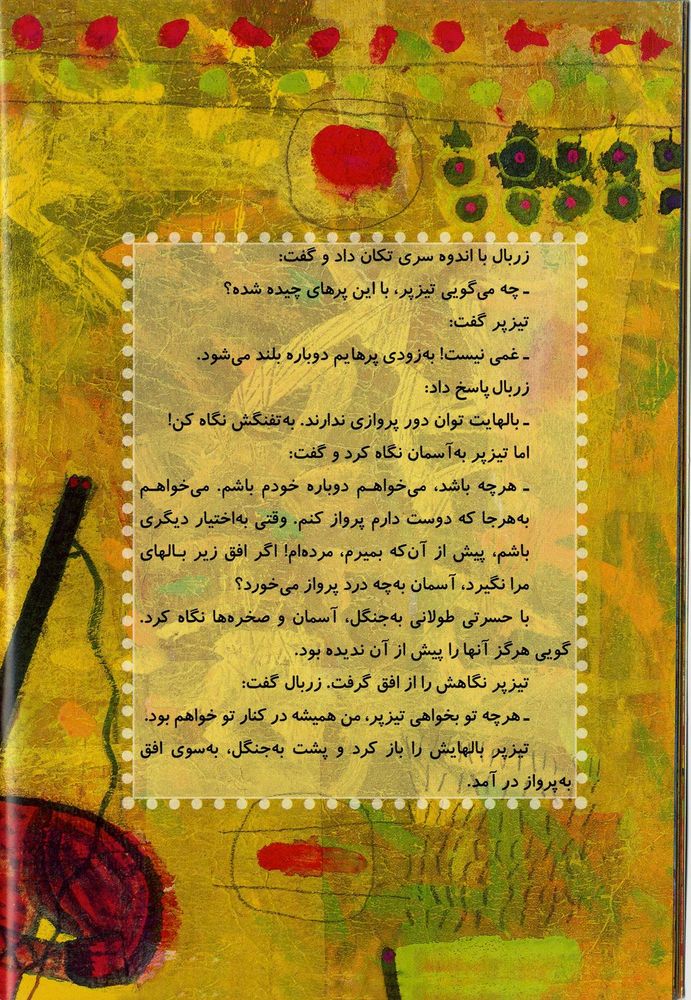 زربال با اندوه سری تکان داد و گفت:
ـ چه می‌گویی تیزپر، با این پرهای چیده شده؟
تیزپر گفت:
ـ غمی نیست! به‌زودی پرهایم دوباره بلند می‌شود.
زربال پاسخ داد:
ـ بالهایت توان دور پروازی ندارند. به‌تفنگش نگاه کن!
اما تیزپر به‌آسمان نگاه کرد و گفت:
ـ هرچه باشد، می‌خواهـم دوباره خودم باشم. می‌خواهـم
به‌هرجا که دوست دارم پرواز کنم. وقتی به‌اختیار دیگری
باشم، پیش از آن‌که بمیرم، مرده‌ام! اگر افق زیر بـالهای
مرا نگیرد، آسمان به‌چه درد پرواز می‌خورد؟
با حسرتی طولانی به‌جنگل، آسمان و صخره‌ها نگاه کرد.
گویی هرگز آنها را پیش از آن ندیده بود.
تیزپر نگاهش را از افق گرفت. زربال گفت:
ـ هرچه تو بخواهی تیزپر، من همیشه در کنار تو خواهم بود.
تیزپر بالهایش را باز کرد و پشت به‌جنگل، به‌سوی افق
به‌پرواز در آمد.